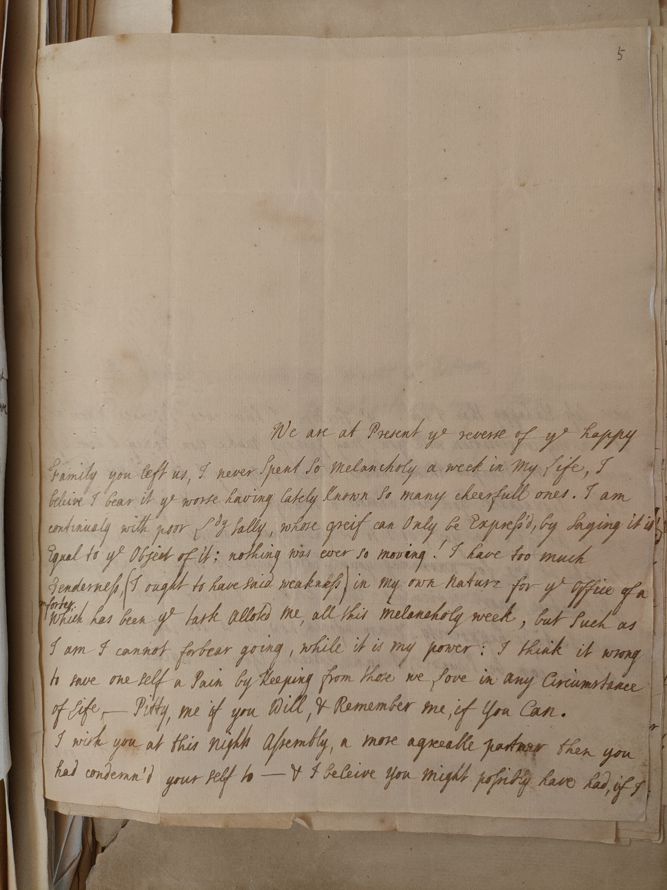 5
We are at Present ye reverse of ye happy
Family you left us, I never Spent So melancholy a week in my Life, I
beleive I bear it ye worse having lately Known So many cheerfull ones. I am
continualy with poor Ldy Sally, whose greif can Only be Express'd, by Saying it is
Equal to ye Object of it; nothing was ever so moving! I have too much
Tenderness, (I ought to have said weakness) in my own nature for ye Office of a
Comforter,
Which has been ye task alloted me, all this melancholy week, but Such as
I am I cannot forbear going, while it is my power: I think it wrong
to save one self a Pain by Keeping from those we Love in any Circumstance
of Life, — Pitty, me if you Will, & Remember me, if You Can.
I wish you at this nights Assembly, a more agreeable partner then you
had condemn'd your self to — & I beleive You might possibly have had, if I